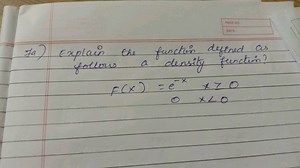 7a) Explain the function defined as
follows a density function?
F(x) = e⁻ˣ x > 0
0 x < 0